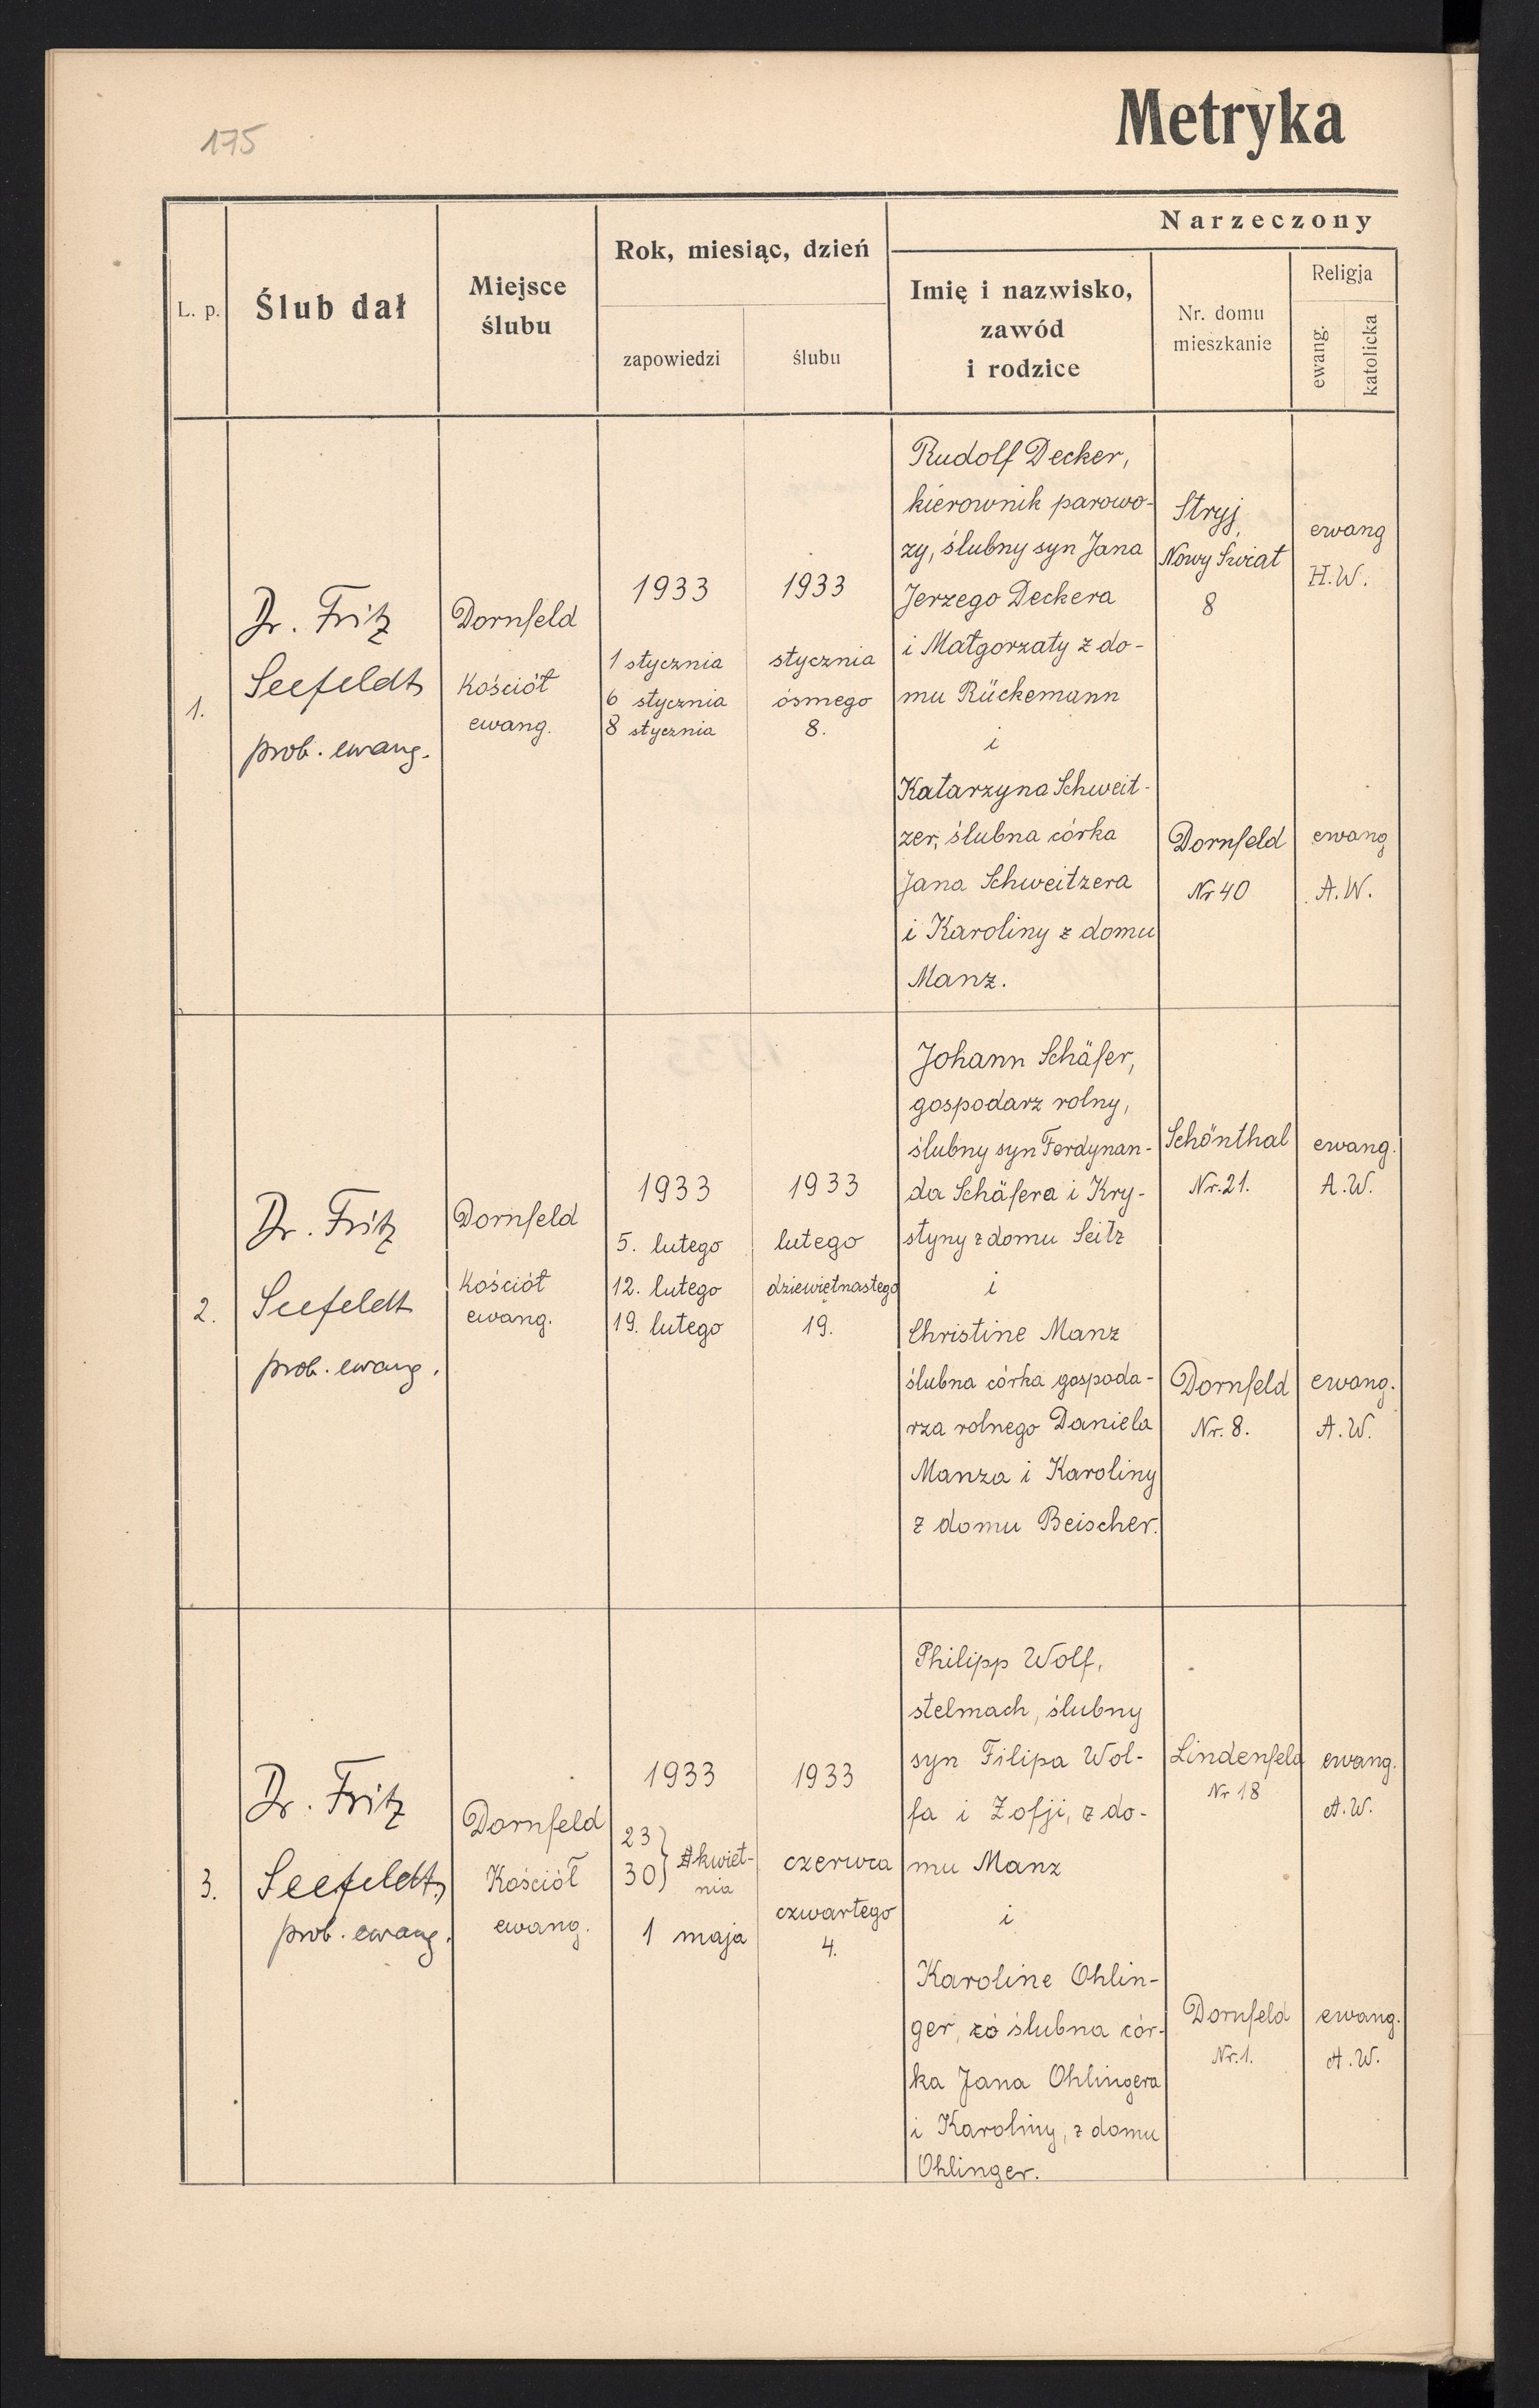 175
Metryka
L. p.
Ślub dał
Miejsce
ślubu
Rok, miesiąc, dzień
zapowiedzi
ślubu
Narzeczony
Imię i nazwisko,
zawód
i rodzice
Nr. domu
mieszkanie
Religja
ewang.
katolicka
1.
Dr. Fritz
Seefeldt
prob. ewang.
Dornfeld
Kościół
ewang.
1933
1 stycznia
6 stycznia
8 stycznia
1933
stycznia
ósmego
8.
Rudolf Decker,
kierownik parowo-
zy, ślubny syn Jana
Jerzego Deckera
i Małgorzaty z do-
mu Rückemann
i
Katarzyna Schweit-
zer, ślubna córka
Jana Schweitzera
i Karoliny z domu
Manz.
Stryj,
Nowy Świat
8
Dornfeld
Nr 40
ewang
H.W.
ewang
A.W.
2.
Dr. Fritz
Seefeldt
prob. ewang.
Dornfeld
Kościół
ewang.
1933
5. lutego
12. lutego
19. lutego
1933
lutego
dziewiętnastego
19.
Johann Schäfer,
gospodarz rolny,
ślubny syn Ferdynan-
da Schäfera i Kry-
styny z domu Seitz
i
Christine Manz
ślubna córka gospoda-
rza rolnego Daniela
Manza i Karoliny
z domu Beischer.
Schönthal
Nr. 21.
Dornfeld
Nr. 8.
ewang.
A.W.
ewang.
A.W.
3.
Dr. Fritz
Seefeldt,
prob. ewang.
Dornfeld
Kościół
ewang.
1933
23
30} kwiet-
nia
1 maja
1933
czerwca
czwartego
4.
Philipp Wolf,
stelmach, ślubny
syn Filipa Wol-
fa i Zofji, z do-
mu Manz
i
Karoline Ohlin-
ger, có ślubna cór-
ka Jana Ohlingera
i Karoliny, z domu
Ohlinger.
Lindenfeld
Nr 18
Dornfeld
Nr. 1.
ewang.
A.W.
ewang.
A.W.